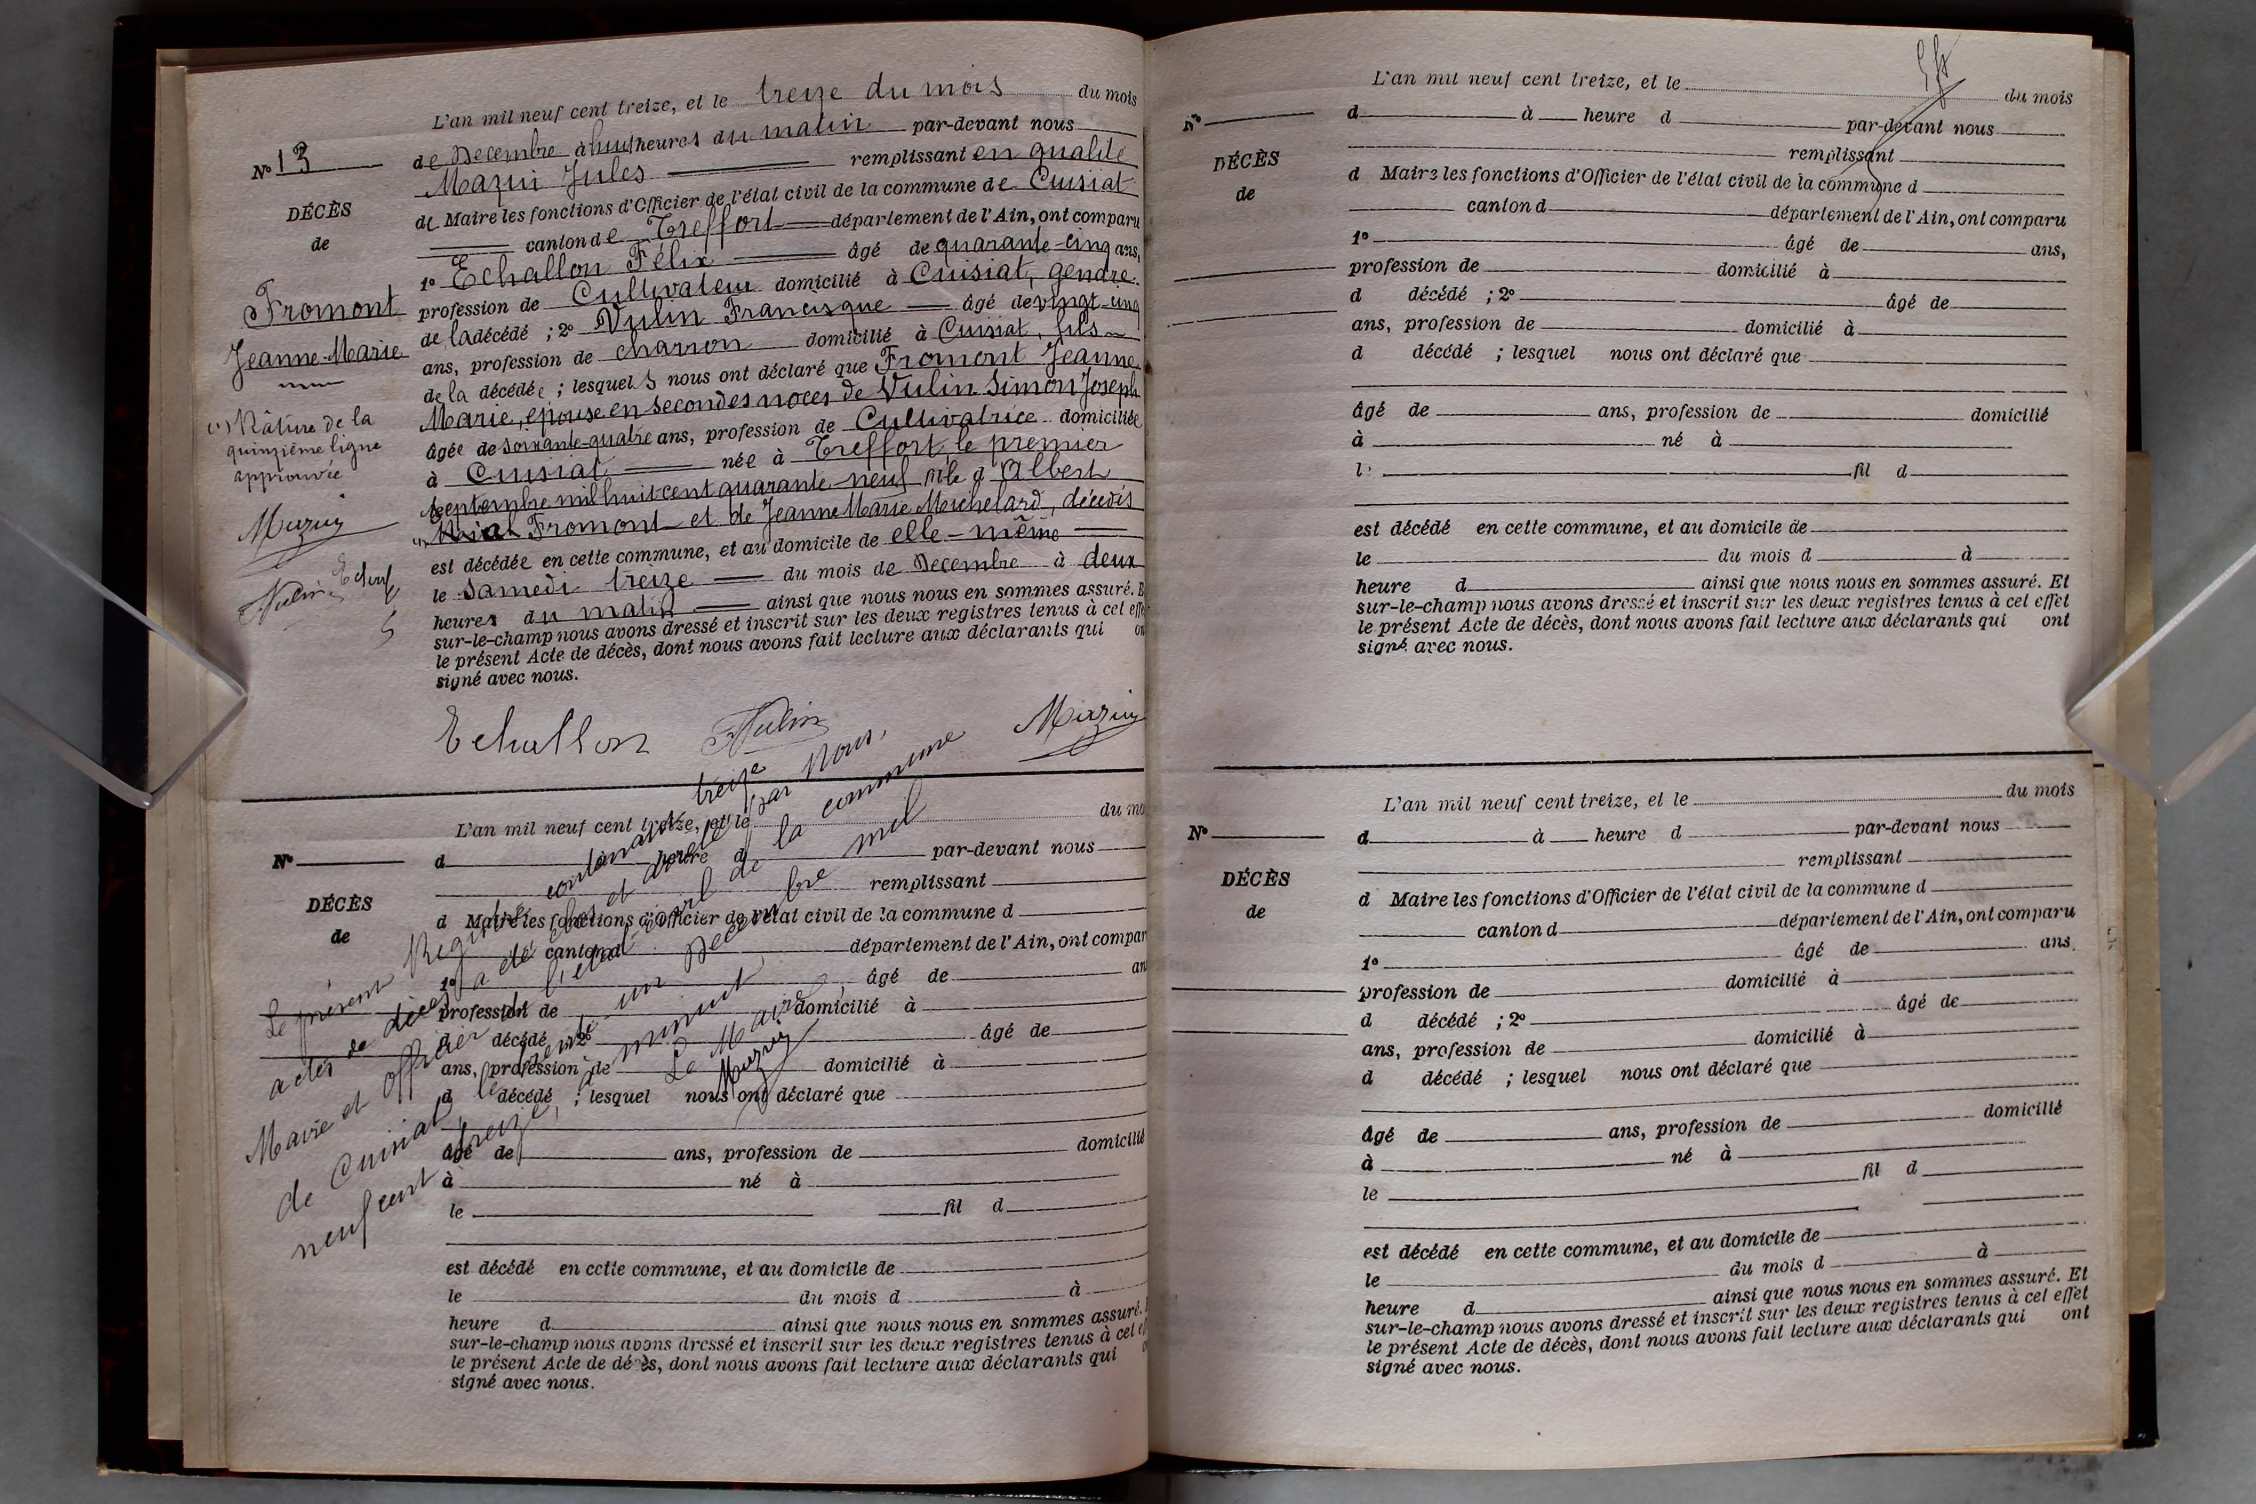 L'an mil neuf cent treize, et le treize du mois du mois
de Decembre à huit heures du matin par-devant nous
Mazuir Jules remplissant en qualité
de Maire les fonctions d'Officier de l'état civil de la commune de Cuisiat
canton de Treffort département de l'Ain, ont comparu
1º Echallon Félix âgé de quarante-cinq ans,
profession de Cultivateur domicilié à Cuisiat, gendre
de la décédé ; 2º Vulin Francisque âgé de vingt-cinq
ans, profession de charron domicilié à Cuisiat, fils
de la décédée ; lesquels nous ont déclaré que Fromont Jeanne
Marie, épouse en secondes noces de Vulin Simon Joseph
âgée de soixante-quatre ans, profession de Cultivatrice domiciliée
à Cuisiat née à Treffort, le premier
septembre mil huit cent quarante-neuf fille d'Albert
Fromont et de Jeanne Marie Michelard, décédés
est décédée en cette commune, et au domicile de elle-même
le samedi treize du mois de Decembre à deux
heures du matin ainsi que nous nous en sommes assuré. E
sur-le-champ nous avons dressé et inscrit sur les deux registres tenus à cet effe
le présent Acte de décès, dont nous avons fait lecture aux déclarants qui on
signé avec nous.
Echallon Vulin Mazuy
Nº 13
DÉCÈS
de
Fromont
Jeanne-Marie
(1) Râture de la
quinzième ligne
approuvée
Mazuy
Vulin
L'an mil neuf cent treize, et le du mo
Nº
d à heure d par-devant nous
remplissant
DÉCÈS
de
d Maire les fonctions d'Officier de l'état civil de la commune d
canton d département de l'Ain, ont compar
1º âgé de an
profession de domicilié à
d décédé ; 2º âgé de
ans, profession de domicilié à
d décédé ; lesquel nous ont déclaré que
âgé de ans, profession de domicilié
à né à
le fil d
est décédé en cette commune, et au domicile de
le du mois d à
heure d ainsi que nous nous en sommes assuré.
sur-le-champ nous avons dressé et inscrit sur les deux registres tenus à cet
le présent Acte de décès, dont nous avons fait lecture aux déclarants qui
signé avec nous.
Le présent Registre contenant treize
actes de décès a été clos et arrêté par Nous,
Maire et officier de l'état civil de la commune
de Cuisiat, le trente un Decembre mil
neuf cent treize, à minuit,
Le Maire,
Mazuy
L'an mil neuf cent treize, et le du mois
Nº
d à heure d par-devant nous
remplissant
DÉCÈS
de
d Maire les fonctions d'Officier de l'état civil de la commune d
canton d département de l'Ain, ont comparu
1º âgé de ans,
profession de domicilié à
d décédé ; 2º âgé de
ans, profession de domicilié à
d décédé ; lesquel nous ont déclaré que
âgé de ans, profession de domicilié
à né à
le fil d
est décédé en cette commune, et au domicile de
le du mois d à
heure d ainsi que nous nous en sommes assuré. Et
sur-le-champ nous avons dressé et inscrit sur les deux registres tenus à cet effet
le présent Acte de décès, dont nous avons fait lecture aux déclarants qui ont
signé avec nous.
L'an mil neuf cent treize, et le du mois
Nº
d à heure d par-devant nous
remplissant
DÉCÈS
de
d Maire les fonctions d'Officier de l'état civil de la commune d
canton d département de l'Ain, ont comparu
1º âgé de ans,
profession de domicilié à
d décédé ; 2º âgé de
ans, profession de domicilié à
d décédé ; lesquel nous ont déclaré que
âgé de ans, profession de domicilié
à né à
le fil d
est décédé en cette commune, et au domicile de
le du mois d à
heure d ainsi que nous nous en sommes assuré. Et
sur-le-champ nous avons dressé et inscrit sur les deux registres tenus à cet effet
le présent Acte de décès, dont nous avons fait lecture aux déclarants qui ont
signé avec nous.